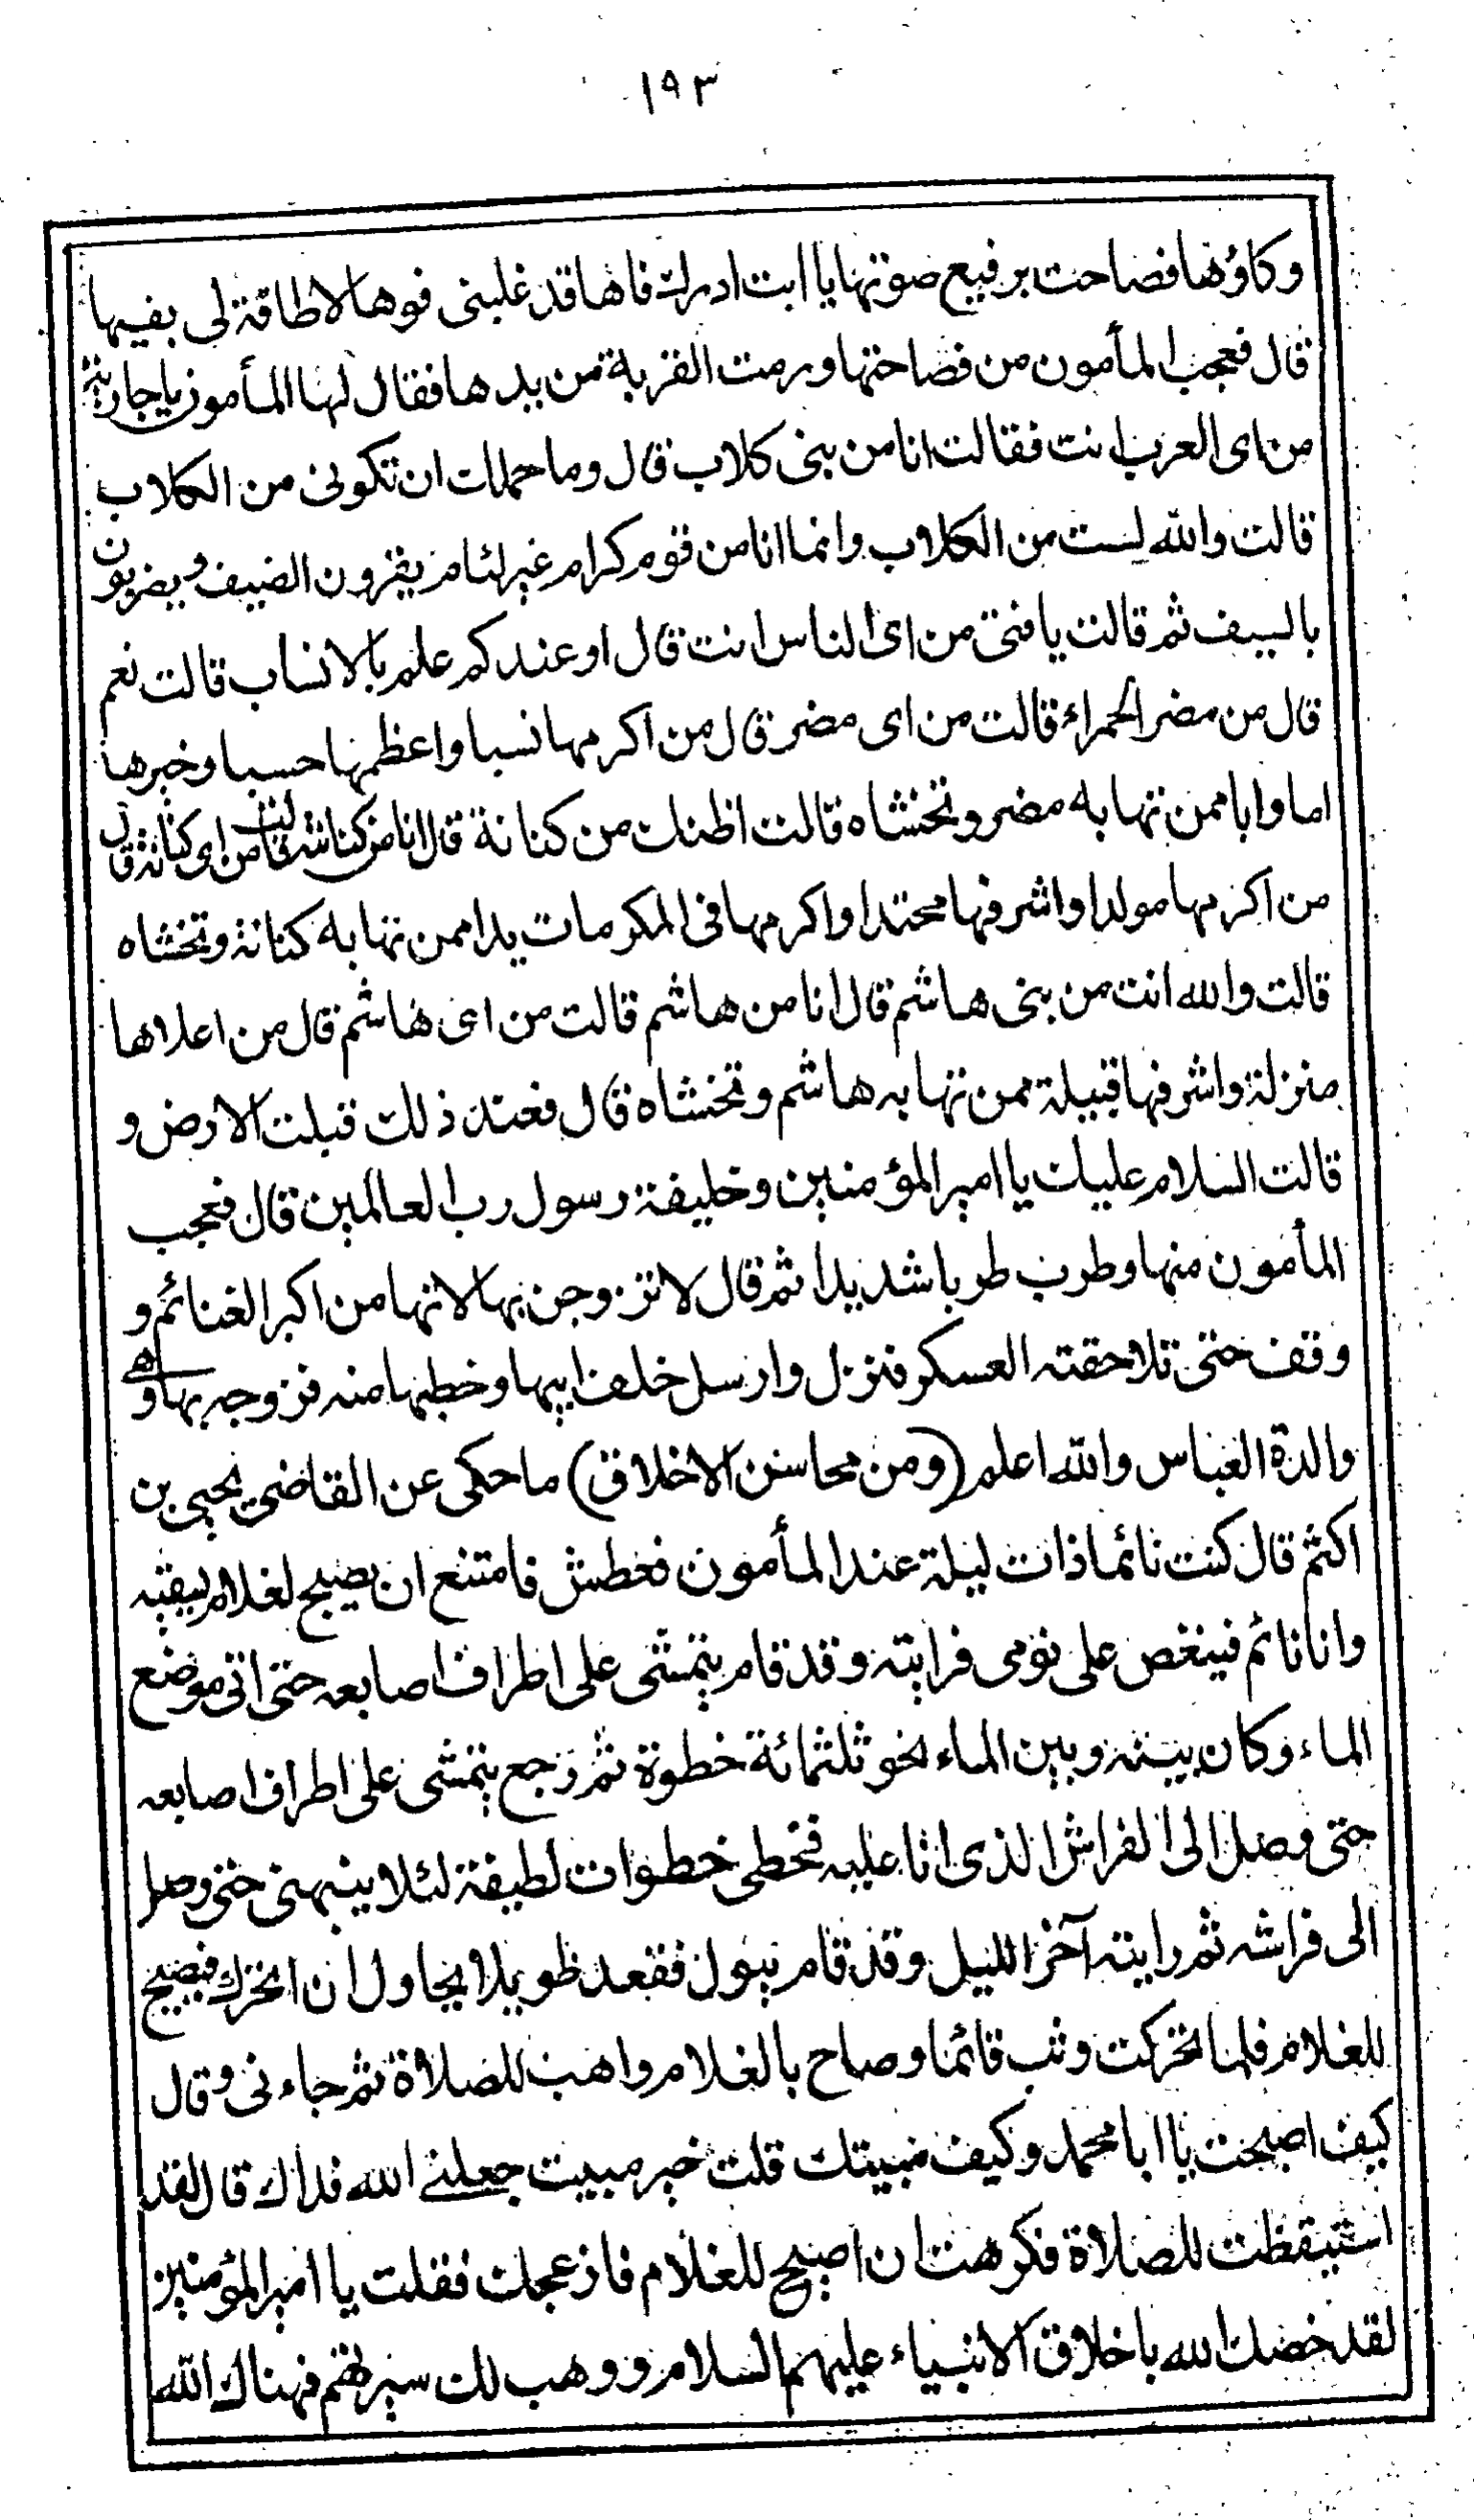 ١٩٣
وكاؤها فصاحت برفيع صوتها يا ابت ادرك فاها قد غلبنى فوها لا طاقة لى بفيها
قال فعجب المأمون من فصاحتها ورمت القربة من يدها فقال لها المأمون يا جارية
من اى العرب انت فقالت انا من بنى كلاب قال وما حملك ان تكونى من الكلاب
قالت والله لست من الكلاب وانما انا من قوم كرام غير لئام يقرون الضيف ويضربون
بالسيف ثم قالت يا فتى من اى الناس انت قال او عندكم علم بالانساب قالت نعم
قال من مضر الحمراء قالت من اى مضر قال من اكرمها نسبا واعظمها حسبا وخيرها
اما وابا ممن تهابه مضر وتخشاه قالت اظنك من كنانة قال انا من كنانة قالت من اى كنانة قال
من اكرمها مولدا واشرفها محتدا واكرمها فى المكرمات يدا ممن تهابه كنانة وتخشاه
قالت والله انت من بنى هاشم قال انا من هاشم قالت من اى هاشم قال من اعلاها
منزلة واشرفها قبيلة ممن تهابه هاشم وتخشاه قال فعند ذلك قبلت الارض و
قالت السلام عليك يا امير المؤمنين وخليفة رسول رب العالمين قال فعجب
المأمون منها وطرب طربا شديدا ثم قال لاتزوجن بها لانها من اكبر الغنائم و
وقف حتى تلاحقته العسكر فنزل وارسل خلف ابيها وخطبها منه فزوجه بها وهى
والدة العباس والله اعلم (ومن محاسن الاخلاق) ما حكى عن القاضى يحيى بن
اكثم قال كنت نائما ذات ليلة عند المأمون فعطش فامتنع ان يصيح لغلام يسقيه
وانا نائم فينغص على نومى فرايته وقد قام يتمشى على اطراف اصابعه حتى اتى موضع
الماء وكان بينه وبين الماء نحو ثلثمائة خطوة ثم رجع يتمشى على اطراف اصابعه
حتى وصل الى الفراش الذى انا عليه فخطى خطوات لطيفة لئلا ينبهنى حتى وصل
الى فراشه ثم رايته آخر الليل وقد قام يبول فقعد طويلا يحاول ان اتحرك فيصيح
للغلام فلما تحركت وثب قائما وصاح بالغلام واهب للصلاة ثم جاءنى وقال
كيف اصبحت يا ابا محمد وكيف مبيتك قلت خير مبيت جعلنى الله فداك قال لقد
استيقظت للصلاة فكرهت ان اصيح للغلام فازعجك فقلت يا امير المؤمنين
لقد خصك الله باخلاق الانبياء عليهم السلام ووهب لك سيرتهم فهناك الله